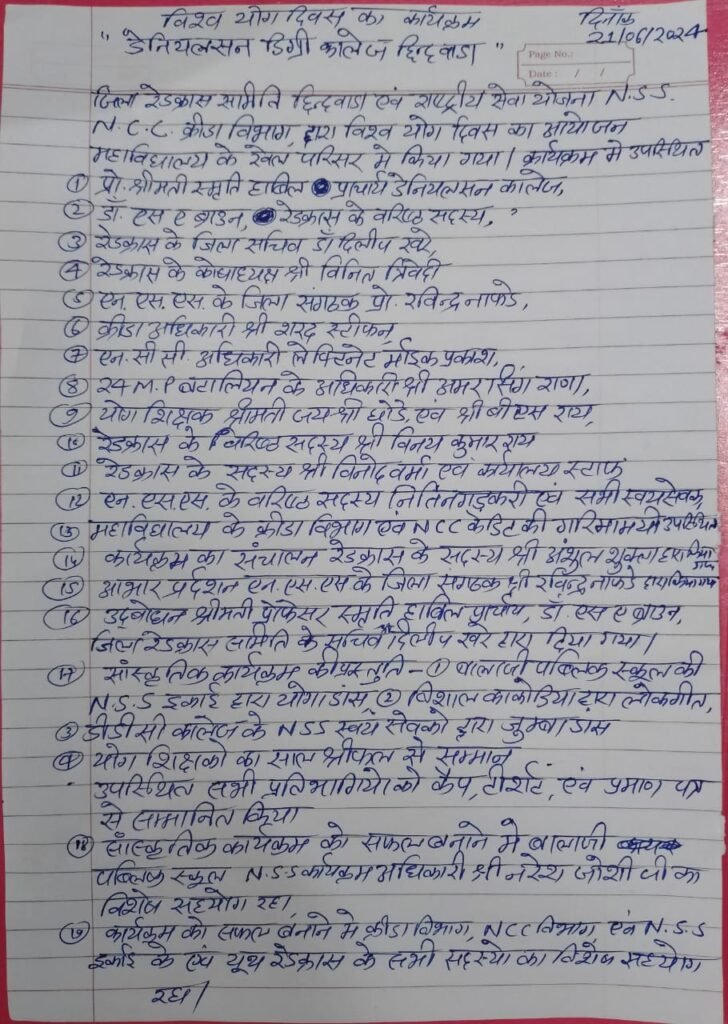 विश्व योग दिवस का कार्यक्रम दिनाँक
21/06/2024
" डेनियलसन डिग्री कालेज छिन्दवाडा "
Page No.:
Date : / /
जिला रेडक्रास समिति छिन्दवाडा एवं राष्ट्रीय सेवा योजना N.S.S.
N.C.C. क्रीडा विभाग, द्वारा विश्व योग दिवस का आयोजन
महाविद्यालय के खेल परिसर मे किया गया। कार्यक्रम मे उपस्थित
① प्रो. श्रीमती स्मृति हाविल प्राचार्य डेनियलसन कालेज,
② डॉ. एस ए ब्राउन, रेडक्रास के वरिष्ठ सदस्य,
③ रेडक्रास के जिला सचिव डॉ दिलीप खरे,
④ रेडक्रास के कोषाध्यक्ष श्री विनित त्रिवेदी
⑤ एन. एस. एस. के जिला संगठक प्रो. रविन्द्र नाफडे,
⑥ क्रीडा अधिकारी श्री शरद स्टीफन,
⑦ एन. सी सी. अधिकारी लेफ्टिनेट माईक प्रकाश,
⑧ 24 M.P बटालियन के अधिकारी श्री अमर सिंग राणा,
⑨ योग शिक्षक श्रीमती जयश्री घोडे, एवं श्री बी एस राय,
⑩ रेडक्रास के वरिष्ठ सदस्य श्री विनय कुमार राय
⑪ रेडक्रास के सदस्य श्री विनोद वर्मा एवं कार्यालय स्टाफ
⑫ एन. एस.एस. के वरिष्ठ सदस्य नितिन गडकरी एवं सभी स्वयंसेवक,
⑬ महाविद्यालय के क्रीडा विभाग एवं NCC केडिट की गरिमामयी उपस्थित
⑭ कार्यक्रम का संचालन रेडक्रास के सदस्य श्री अंशुल शुक्ला द्वारा किया गया
⑮ आभार प्रर्दशन एन. एस. एस के जिला संगठक श्री रविन्द्र नाफडे द्वारा किया गया
⑯ उद्बोधन श्रीमती प्रोफेसर स्मृति हाविल प्राचार्य, डॉ. एस ए ब्राउन,
जिला रेडक्रास समिति के सचिव दिलीप खरे द्वारा दिया गया।
⑰ सांस्कृतिक कार्यक्रम की प्रस्तुति - ① बालाजी पब्लिक स्कूल की
N.S.S इकाई द्वारा योगा डांस, ② विशाल काकोडिया द्वारा लोकगीत,
③ डीडी सी कालेज के NSS स्वयं सेवको द्वारा जुम्बा डांस
योग शिक्षको का साल श्रीफल से सम्मान
उपस्थित सभी प्रतिभागियो को कैप, टीशर्ट, एवं प्रमाण पत्र
से सामानित किया
⑱ सांस्कृतिक कार्यक्रम को सफल बनाने मे बालाजी
पब्लिक स्कूल N.S.S कार्यक्रम अधिकारी श्री नरेश जोशी जी का
विशेष सहयोग रहा,
⑲ कार्यक्रम को सफल बनाने मे क्रीडा विभाग, NCC विभाग एवं N.S.S
इकाई के एवं यूथ रेडक्रास के सभी सदस्यो का विशेष सहयोग
रहा।